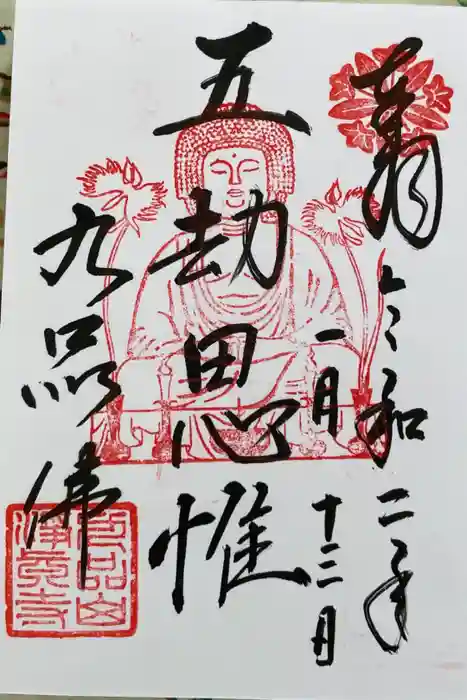 奉拝
令和二年
一月十二日
五劫思惟
九品佛
九品山
淨眞寺